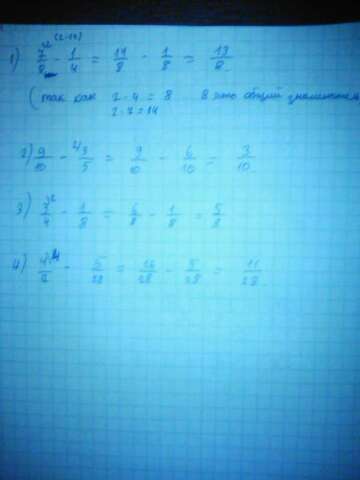 1) 7/8 - 1/4 = 14/8 - 1/8 = 13/8
(так как 2·4 = 8 8 это общий знаменатель
2·7 = 14
2) 9/10 - 3/5 = 9/10 - 6/10 = 3/10
3) 3/4 - 1/8 = 6/8 - 1/8 = 5/8
4) 4/7 - 5/28 = 16/28 - 5/28 = 11/28